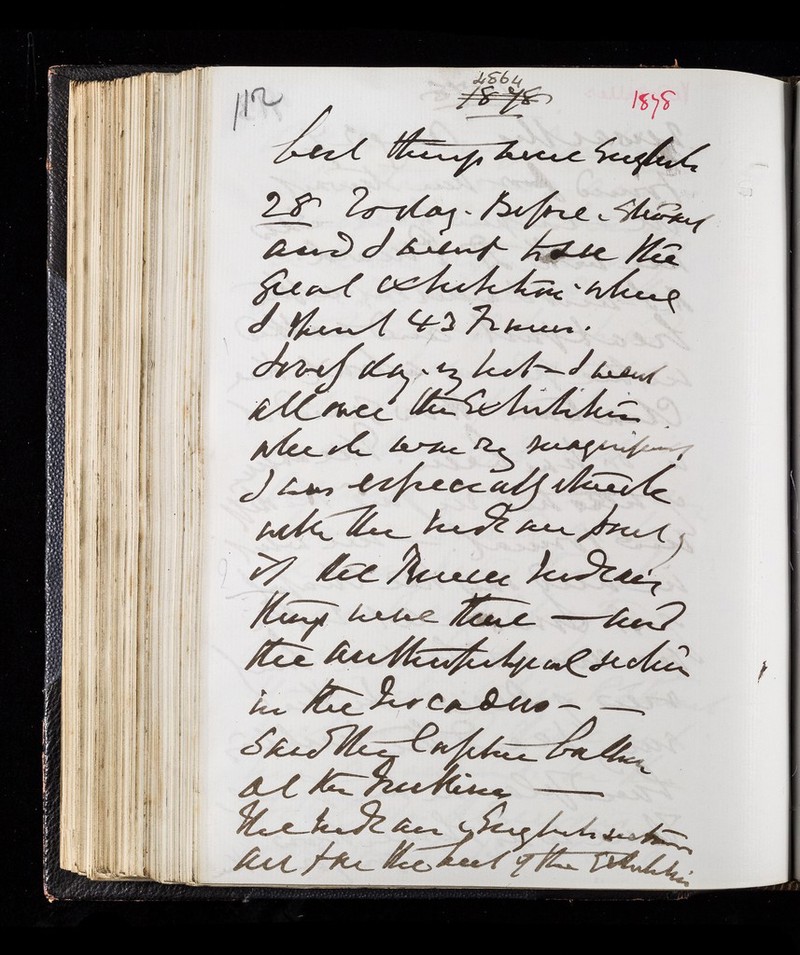 112
4864
1878
1878
best things were English
28 Today. Before
and I went to see the
great exhibition where
I spent 43 Francs.
Lovely day. very hot — I went
all over the Exhibition
which was very magnificent
I was especially struck
with the Indian
of the Indian
things were there — and
the anthropological section
in the Trocadero — —
at the
The Indian & English section
are far the best of the Exhibition